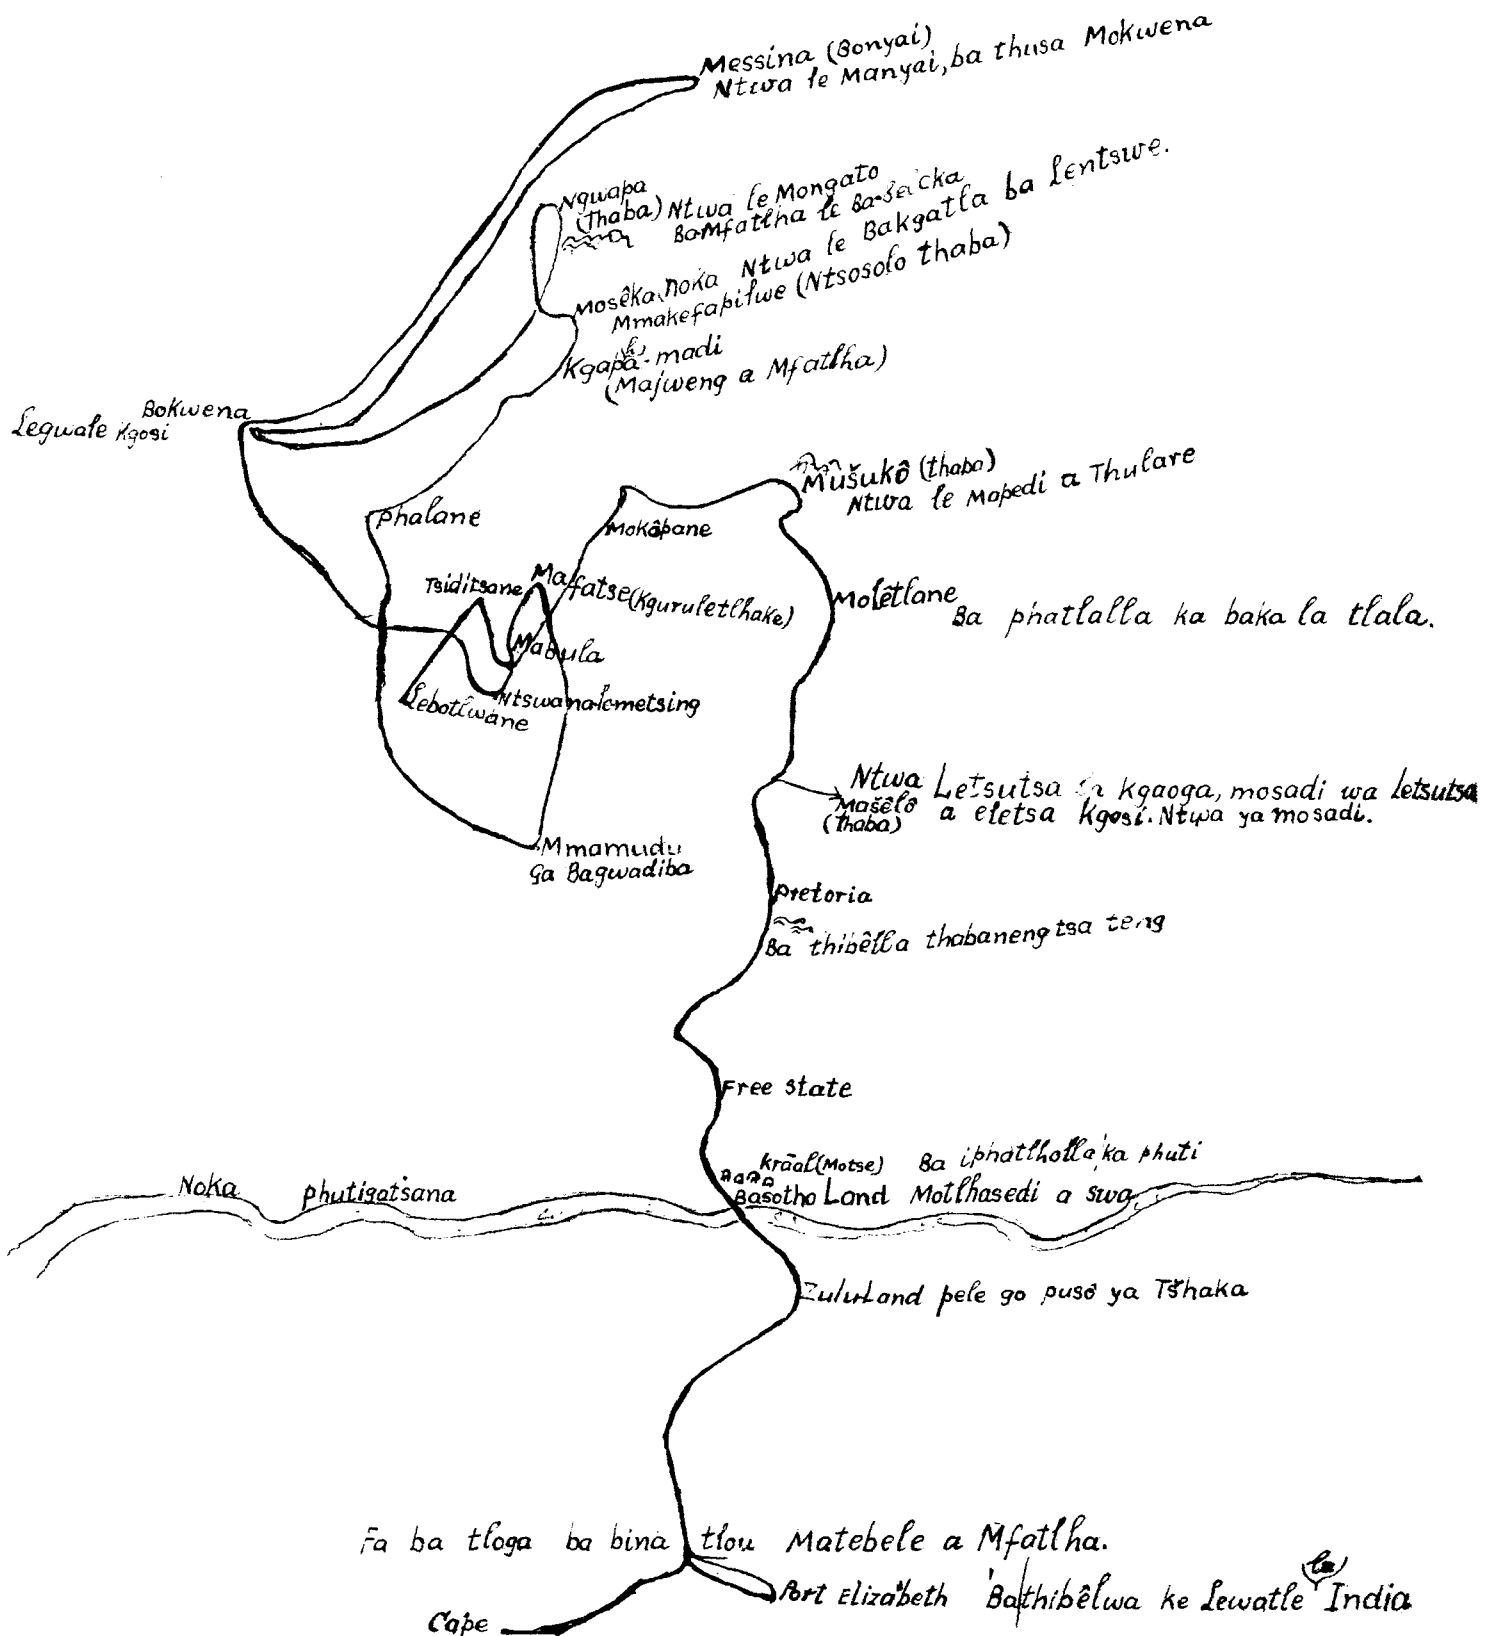 Messina (Bonyai)
Ntwa le Manyai, ba thusa Mokwena
Ngwapa
(Thaba)
Ntwa le Mongato
BaMfatlha le
Mosêka noka Ntwa le Bakgatla ba Lentswe.
Mmakefapilwe (Ntsosolo thaba)
Kgapa-madi
(Majweng a Mfatlha)
Bokwena
Legwale Kgosi
Mušukô (thaba)
Ntwa le Mapedi a Thulare
Phalane
Mokôpane
Tsiditsane
Mafatse (Kguruletlhake)
Molêtlane
Ba phatlalla ka baka la tlala.
Mabula
Lebotlwane
Ntswana-lemetsing
Ntwa Letsutsa kgaoga, mosadi wa Letsutsa
Mašêlô
(thaba)
a eletsa Kgosi. Ntwa ya mosadi.
Mmamudu
Ga Bagwadiba
Pretoria
Ba thibêlla thabaneng tsa teng
Free State
Kraal (Motse) Ba iphatlholla ka phuti
Noka Phutigatsana
Basotho Land Motlhasedi a swa
ZuluLand pele go pusô ya Tšhaka
Fa ba tloga ba bina tlou Matebele a Mfatlha.
Port Elizabeth Ba thibêlwa ke Lewatle la India
Cape